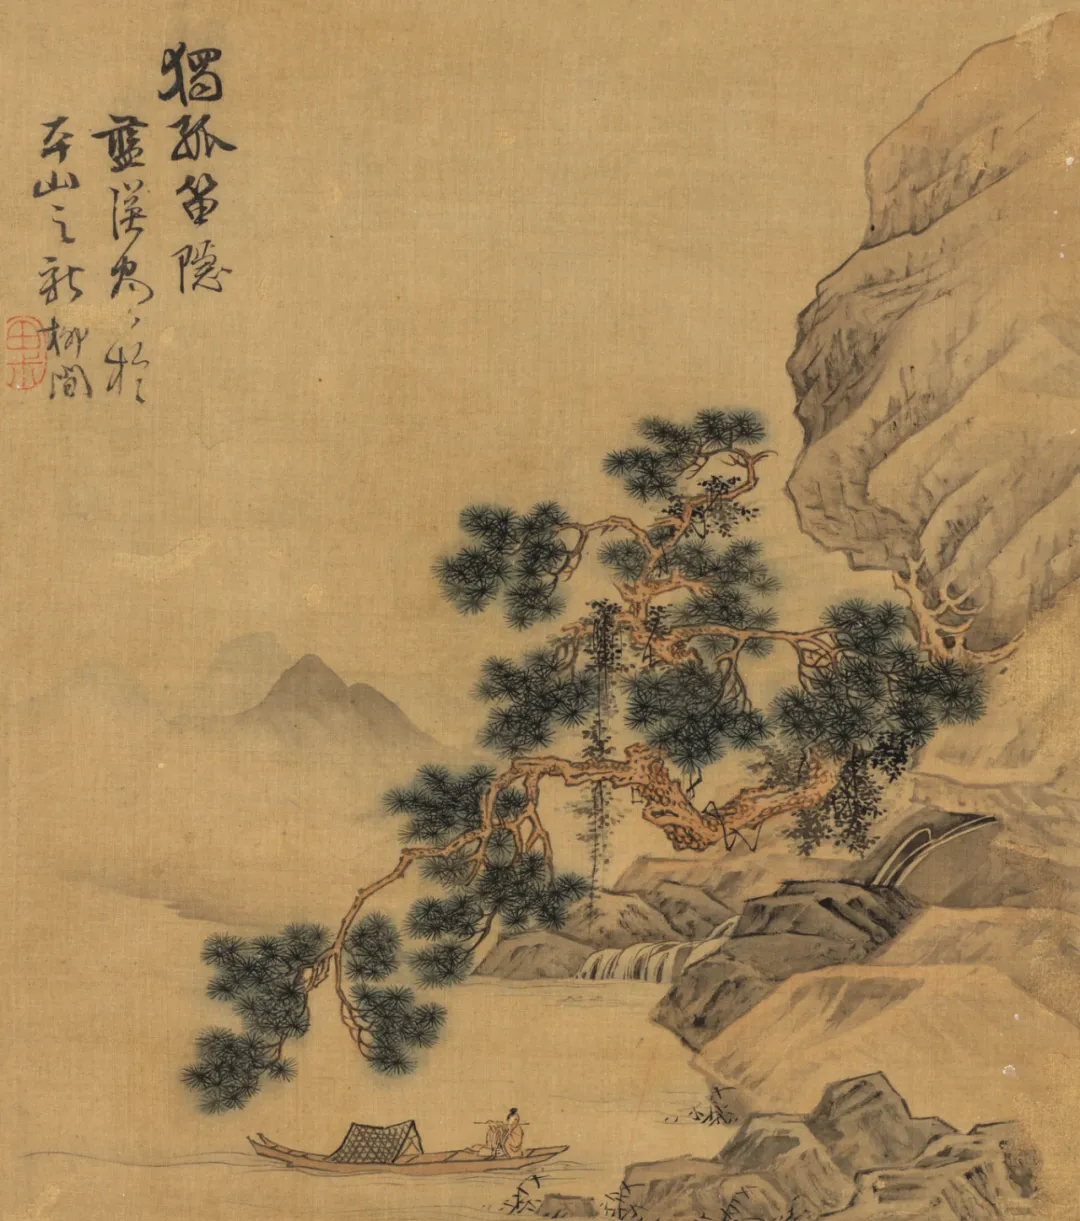 獨孤笛隱
藍瑛寫於
平山之新柳間
田叔